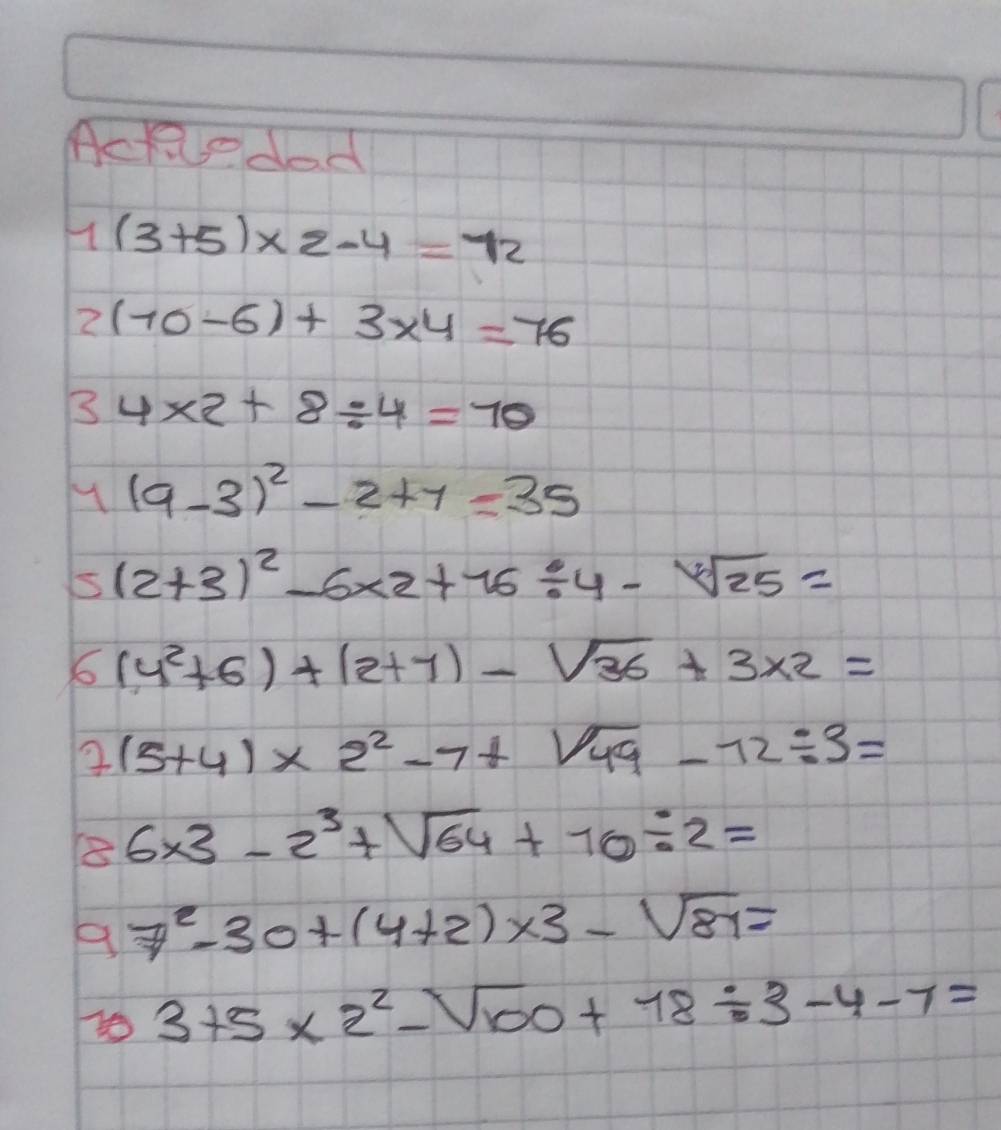 Actividad
1 (3+5)×2-4 = 12
2 (10-6)+ 3×4 = 16
3 4×2+ 8÷4 = 10
4 (9-3)² - 2+1 = 35
5 (2+3)² - 6×2+16÷4 - √25 =
6 (4²+6)+(2+1) - √36 + 3×2 =
7 (5+4)× 2² -7+ √49 -12÷3 =
8 6×3 - 2³+√64 + 10÷2 =
9 7²-30+(4+2)×3 - √81 =
10 3+5×2²-√100+ 18÷3-4-1 =